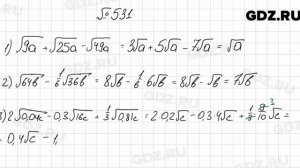 GDZ.RU
№531
1) √9a + √25a − √49a = 3√a + 5√a − 7√a = √a
2) √64b − 1/6 √36b = 8√b − 1/6 · 6√b = 8√b − √b = 7√b
3) 2√0,04c − 0,3√16c + 1/3 √0,81c = 2·0,2√c − 0,3·4√c + 1/3 · 9/10 √c =
= 0,4√c − 1,
GDZ.RU